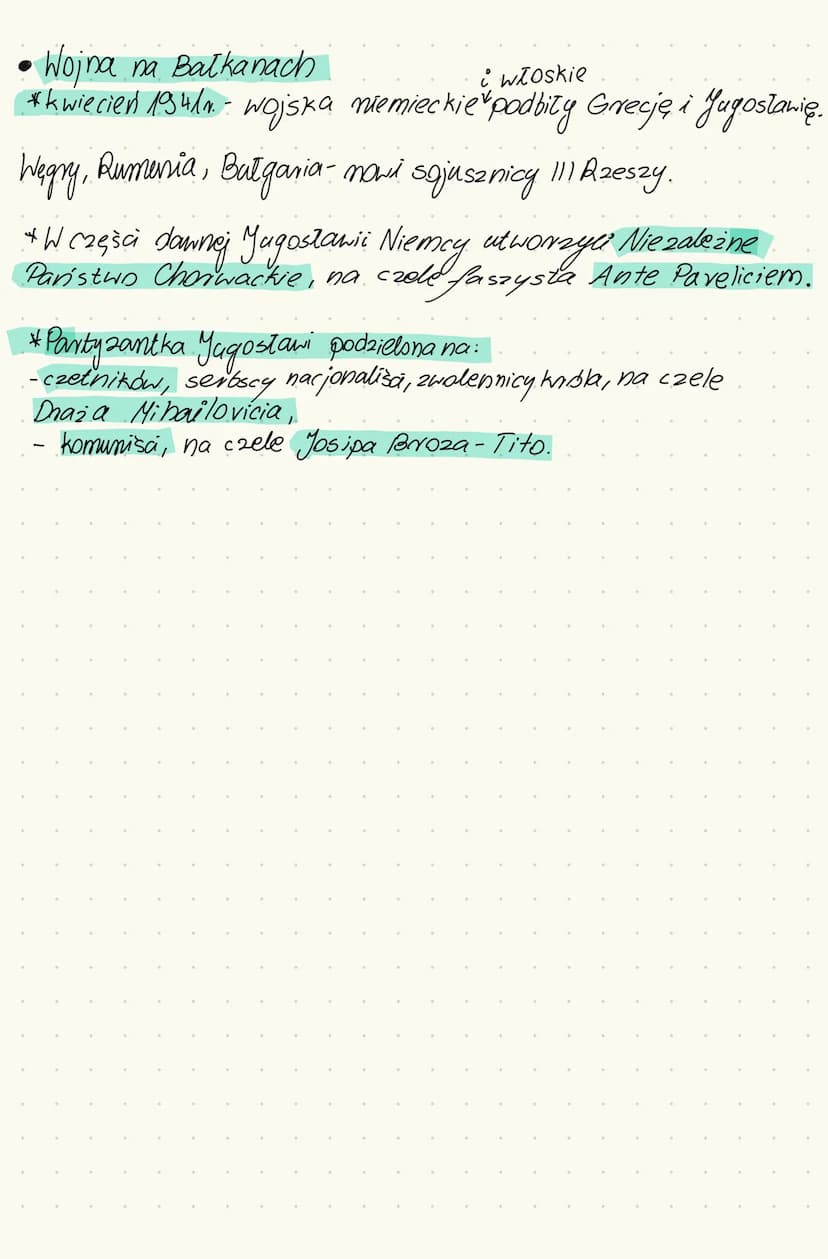 • Wojna na Bałkanach
*kwiecień 1941r. - wojska niemieckie i włoskie podbiły Grecję i Jugosławię.
Węgry, Rumunia, Bułgaria - nowi sojusznicy III Rzeszy.
*W części dawnej Jugosławii Niemcy utworzyli Niezależne
Państwo Chorwackie, na czele faszysta Ante Paveliciem.
*Partyzantka Jugosławi podzielona na:
- czetników, serbscy nacjonaliści, zwolennicy króla, na czele
Draża Mihailovicia,
- komuniści, na czele Josipa Broza - Tito.